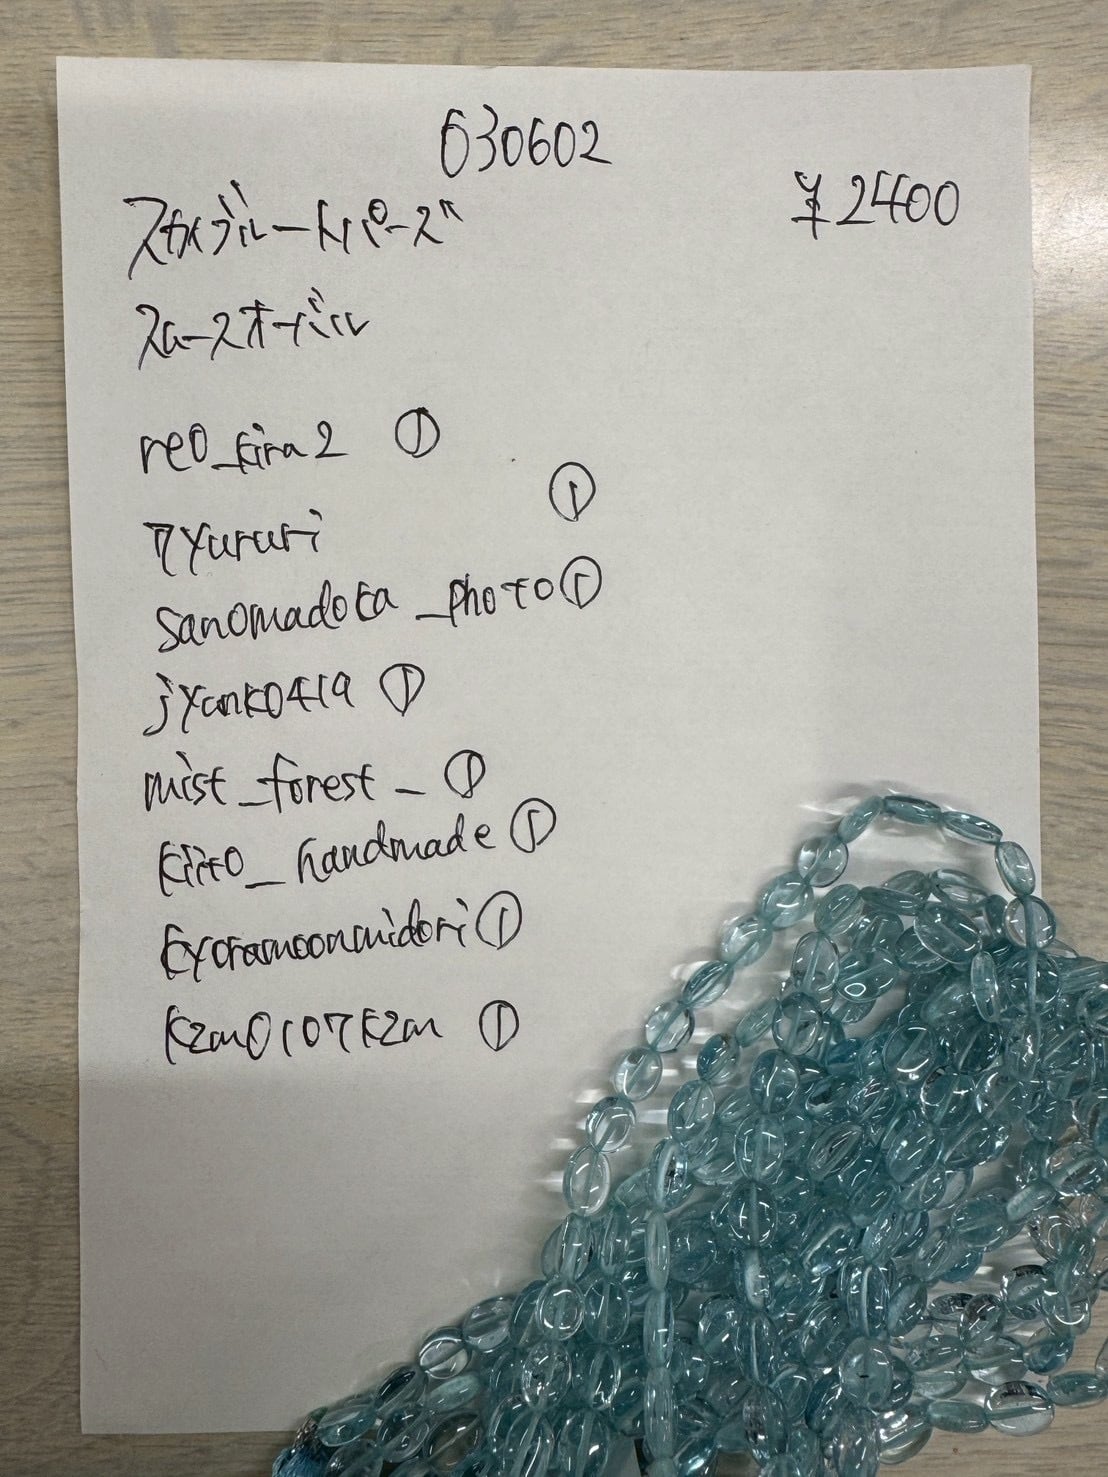 630602
¥2400
スカイブルートパーズ
スムースオーバル
reo_kira2 ①
77yururi ①
sanomadoka_photo ①
jyank0419 ①
mist_forest_ ①
kiito_handmade ①
kyoramoonmidori ①
kzm0107kzm ①